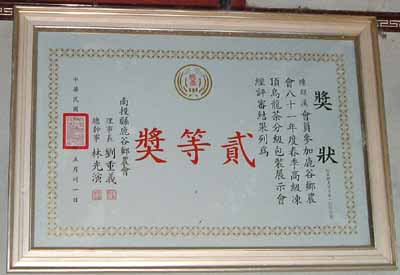 獎狀
陳錫溪會員參加鹿谷鄉農
會八十一年度春季高級凍
頂烏龍茶分級包裝展示會
經評審結果列為
貳等獎
南投縣鹿谷鄉農會
理事長 劉重義
總幹事 林光演
中華民國
五月卅一日